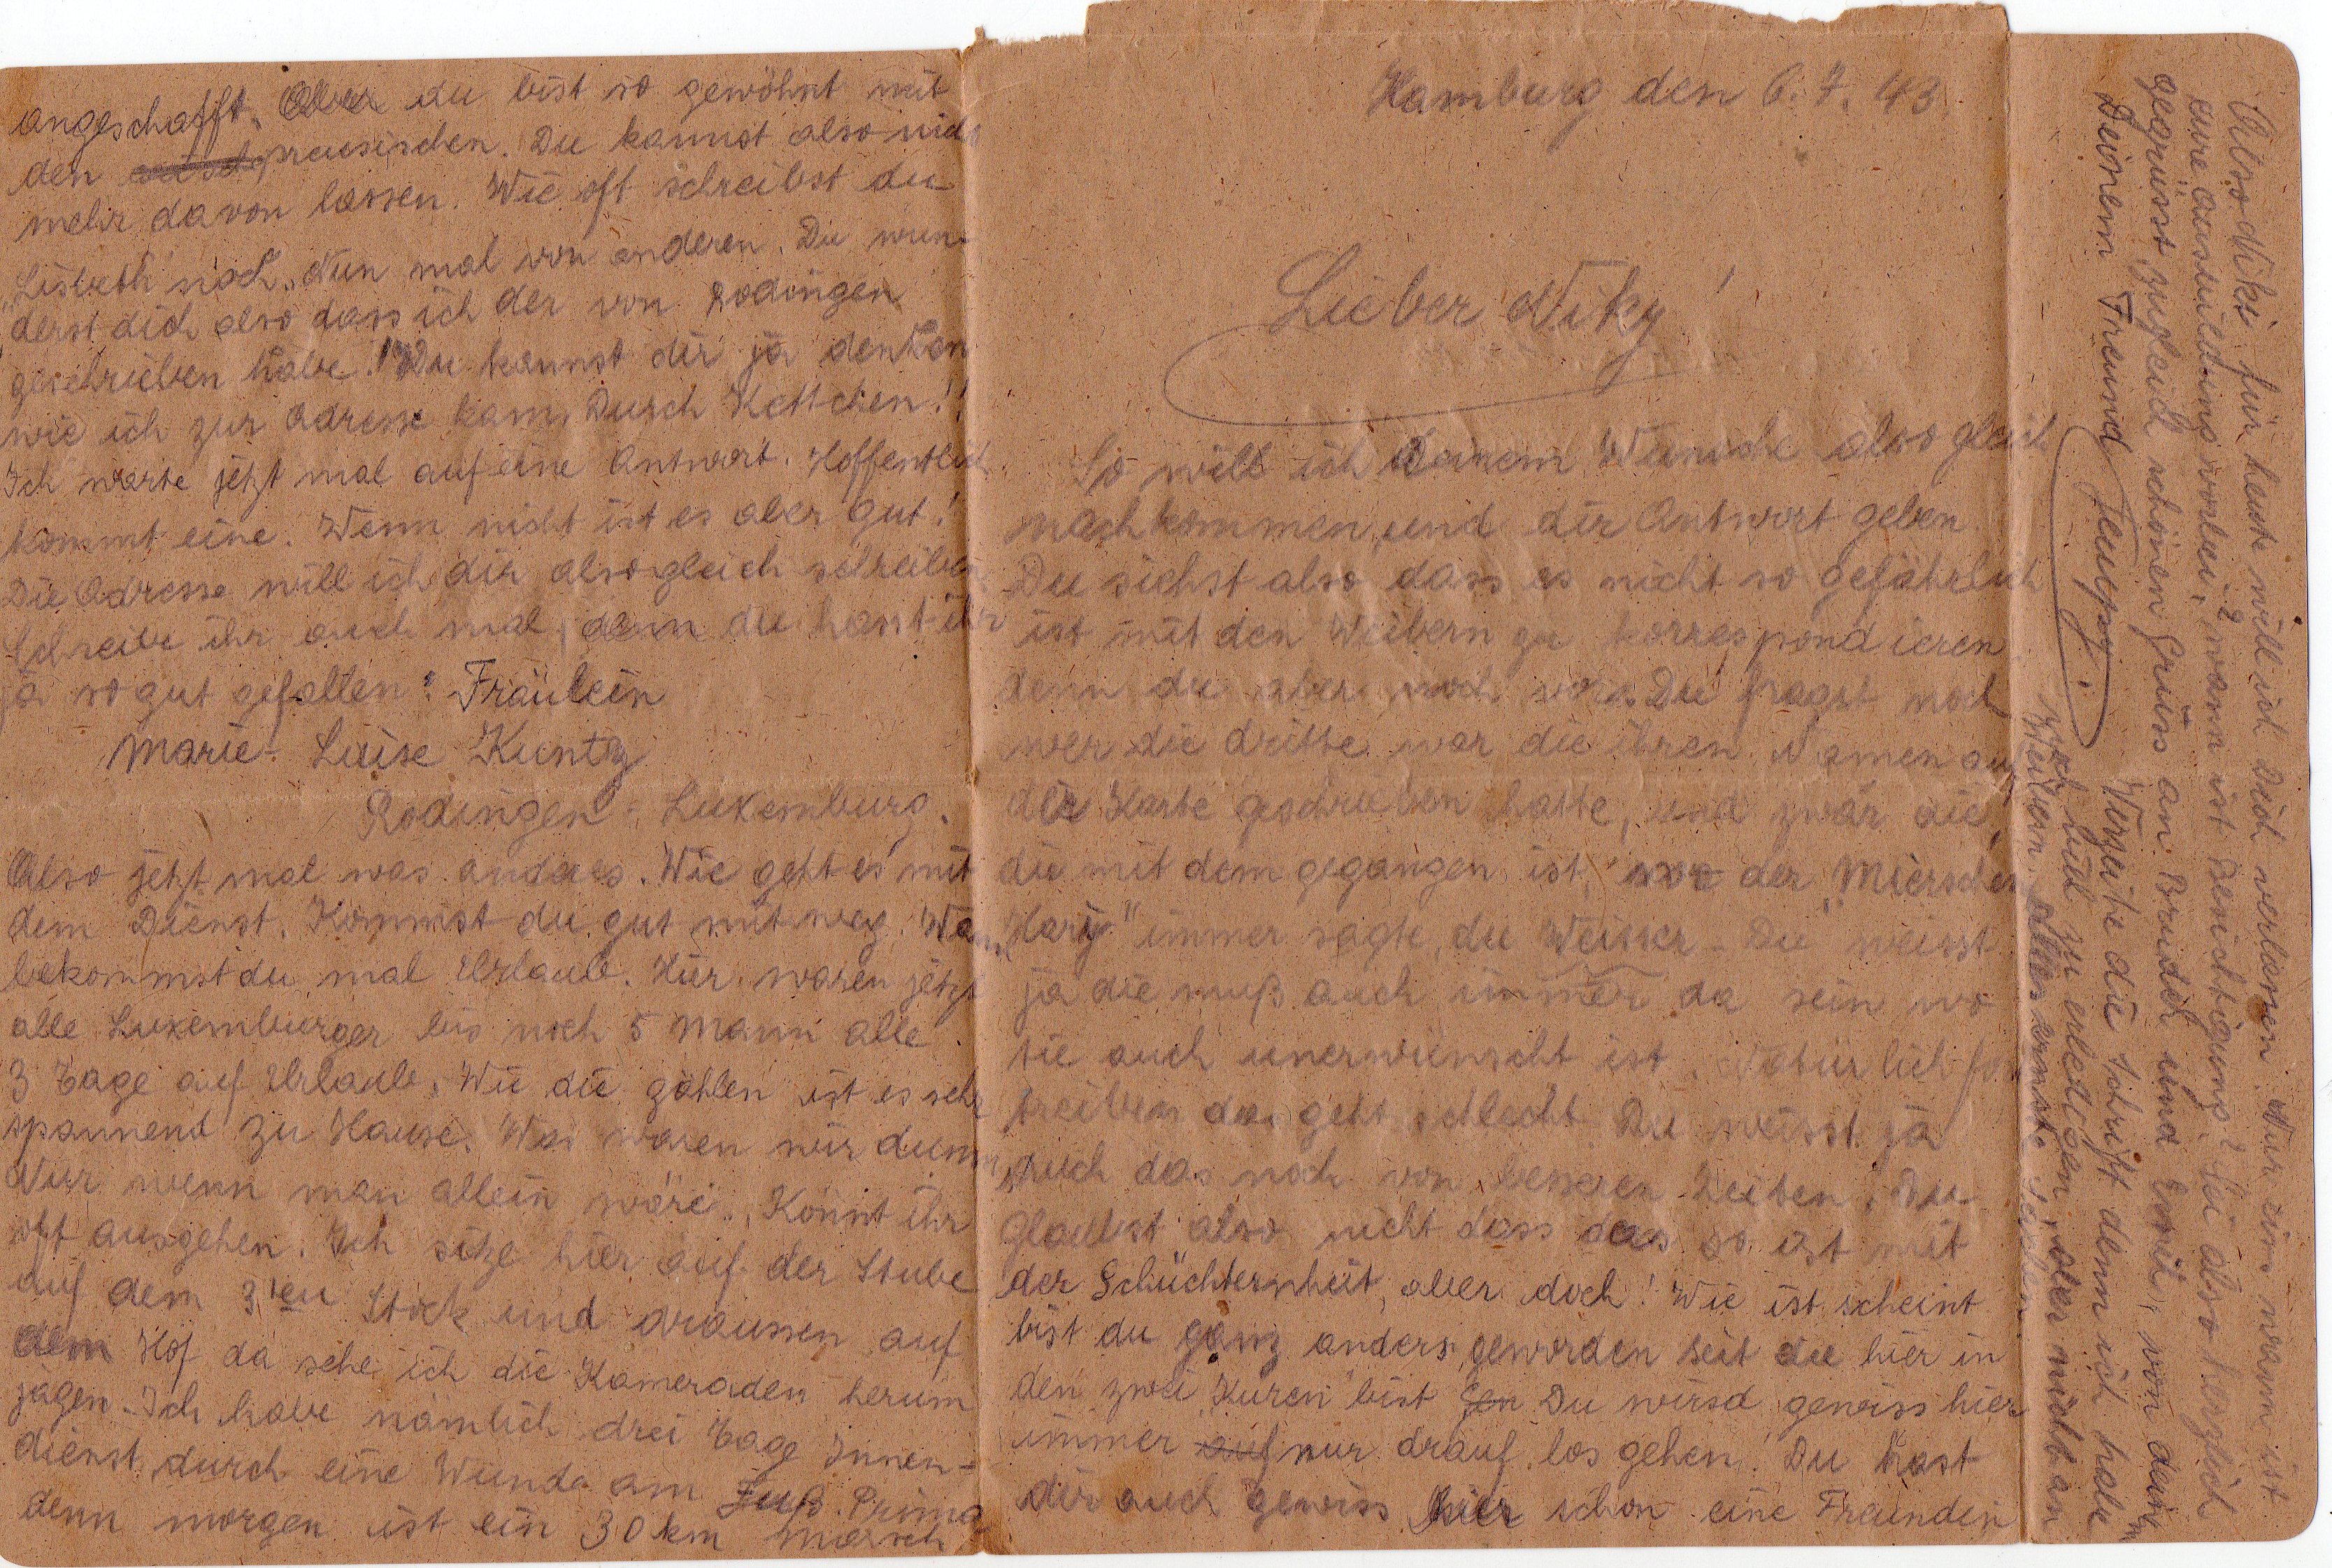 Hamburg den 6.7.43
Lieber Niky!
So will ich deinem Wunsche also gleich
nachkommen, und dir Antwort geben.
Du siehst also dass es nicht so gefährlich
ist mit den Weibern zu korrespondieren
denn du aber noch vor. Du fragst noch
wer die dritte war die ihren Namen auf
der Karte geschrieben hatte, und zwar die,
die mit dem gegangen ist, der "Mierscher
Hary" immer sagte, du Weisser - Du weisst
ja die muß auch immer da sein wo
sie auch unerwünscht ist. Natürlich
treiben das geht schlecht Du weisst ja
auch das noch von besseren Zeiten. Du
glaubst also nicht dass das so ist mit
der Schüchternheit, aber doch! Wie ist scheint
bist du ganz anders geworden seit du hier in
den zwei Huren bist Du wirsd gewiss hier
immer auf nur drauf los gehen! Du hast
dir auch gewiss hier schon eine Freundin
angeschafft. Aber du bist so gewöhnt mit
den preusischen. Du kannst also nicht
mehr davon lassen. Wie oft schreibst du
"Lisbeth" noch. Nun mal von anderen. Du wun-
derst dich also dass ich der von Rodingen
geschrieben habe! Du kannst dir ja denken
wie ich zur Adresse kam, Dusch Kettchen!!
Ich warte jetzt mal auf eine Antwort. Hoffentlich
kommt eine. Wenn nicht ist es aber gut!
Die Adresse will ich dir also gleich schreiben.
Schreibe ihr auch mal, denn du hast ihr
ja so gut gefallen: Fräulein
Marie-Luise Kuntz
Rodingen - Luxemburg.
Also jetzt mal was anderes. Wie geht es mit
dem Dienst. Kommst du gut mit weg. Wann
bekommst du mal Urlaub. Hier waren jetzt
alle Luxemburger bis noch 5 Mann alle
3 Tage auf Urlaub. Wie die zählen ist es sehr
spannend zu Hause. Was waren wir dumm
Nur wenn man allein wäre. Könnt ihr
oft ausgehen. Ich sitze hier auf der Stube
auf dem 3ten Stock und draussen auf
dem Hof da sehe ich die Kameraden herum
jagen. Ich habe nämlich drei Tage Innen-
dienst durch eine Wunde am Fuß. Prima
denn morgen ist ein 30 km Marsch
Also Niki für heute will ich Dich verlassen. Nur eins wann ist
eure Ausbildung vorbei,? wann ist Besichtigung? Sei also herzlich
gegrüsst zugleich schönen Gruss an Bruder und Emil, von deinem
Deinem Freund Jempy.
Verzeihe die Schrift denn ich habe
noch viel zu erledigen, aber nicht an
Weibern. Alles ernste Sachen